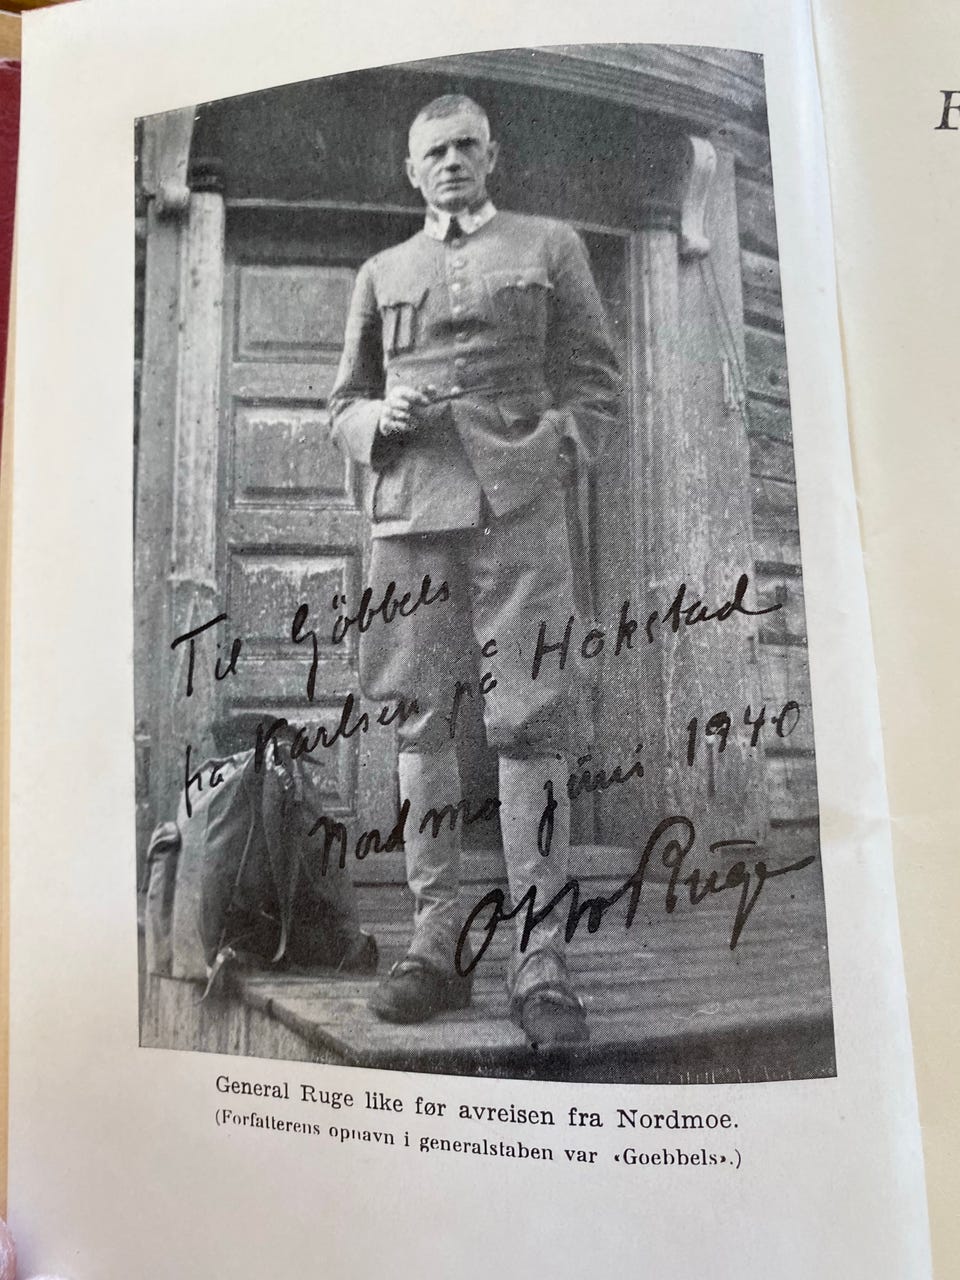 Til Göbbels
fra Karlsen på Hokstad
Nordmo jüni 1940
Otto Ruge
General Ruge like før avreisen fra Nordmoe.
(Forfatterens opnavn i generalstaben var «Goebbels».)